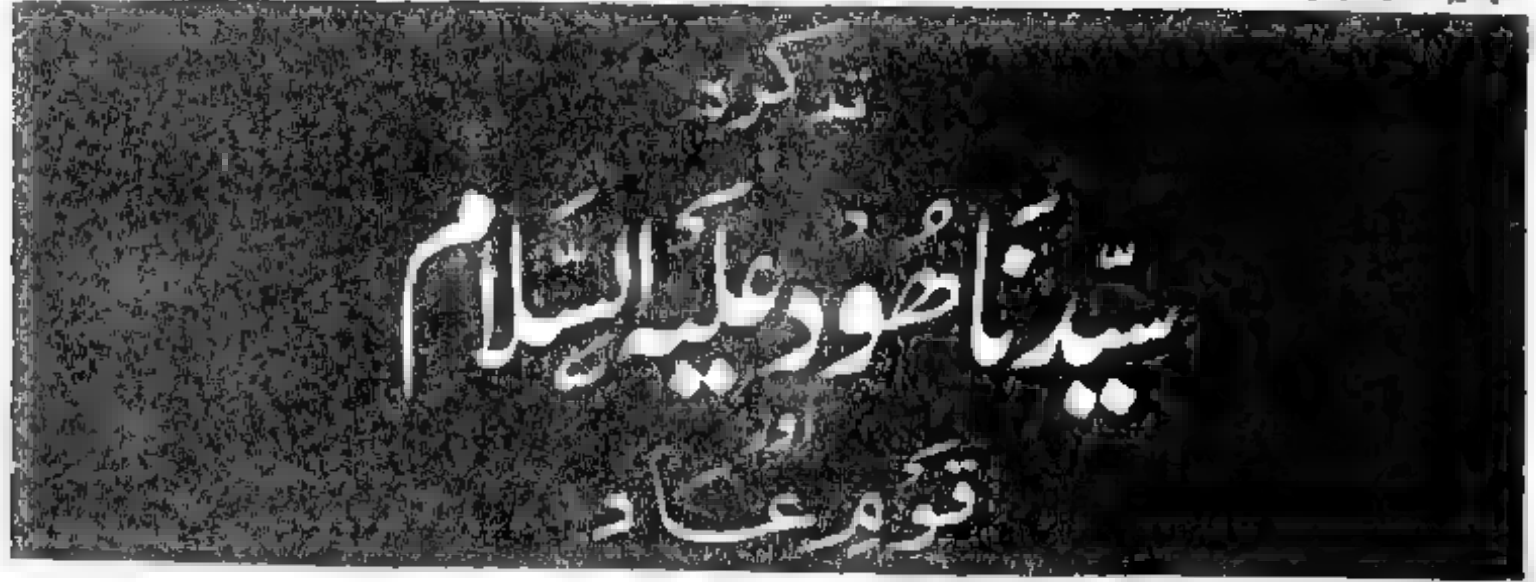 تذکرہ
سَیّدنَا ھُوْد عَلَیہ السَّلام
اور
قَوم عَاد